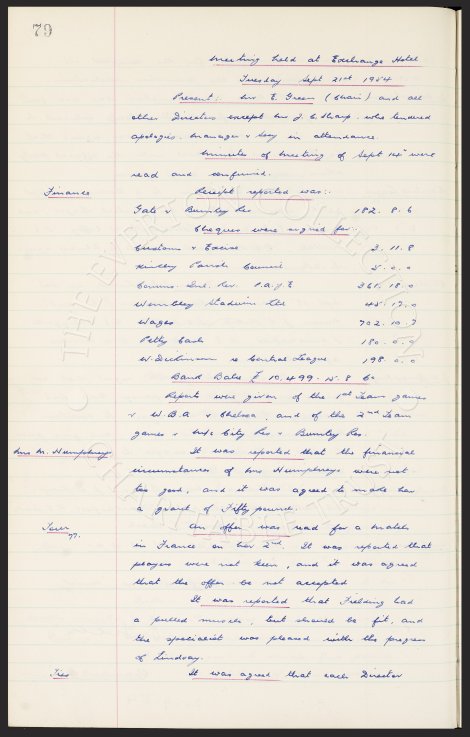 79
Meeting held at Exchange Hotel
Tuesday Sept 21st 1954
Present:- Mr E. Green (Chair) and all
other Directors except Mr J. C. Sharp. who tendered
apologies. Manager & Secy in attendance.
Minutes of Meeting of Sept 14th were
read and confirmed.
Finance
Receipt reported was:-
Gate v Burnley Res 182. 8. 6
Cheques were signed for:-
Customs & Excise 2. 11. 8
Kirkby Parish Council 5. 0. 0
Comms. Inl. Rev. P.A.Y.E 361. 18. 0
Wembley Stadium Ltd 45. 17. 0
Wages 702. 10. 7
Petty Cash 180. 0. 0
W. Dickinson re Central League 198. 0. 0
Bank Balce £10,499. 15. 8 Cr
Reports were given of the 1st Team games
v W.B.A. & Chelsea, and of the 2nd Team
games v M/c City Res & Burnley Res.
Mrs M. Humphreys
It was reported that the financial
circumstances of Mrs Humphreys were not
too good, and it was agreed to make her
a grant of Fifty pound.
Tour
77.
An offer was read for a match
in France on Nov 2nd. It was reported that
players were not keen, and it was agreed
that the offer be not accepted
It was reported that Fielding had
a pulled muscle, but should be fit, and
the specialist was pleased with the progress
of Lindsay.
It was agreed that each Director
THE EVERTON COLLECTION
CHARITABLE TRUST